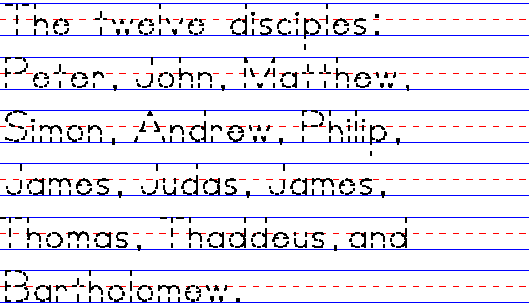 The twelve disciples:
Peter, John, Matthew,
Simon, Andrew, Philip,
James, Judas, James,
Thomas, Thaddeus, and
Bartholomew.